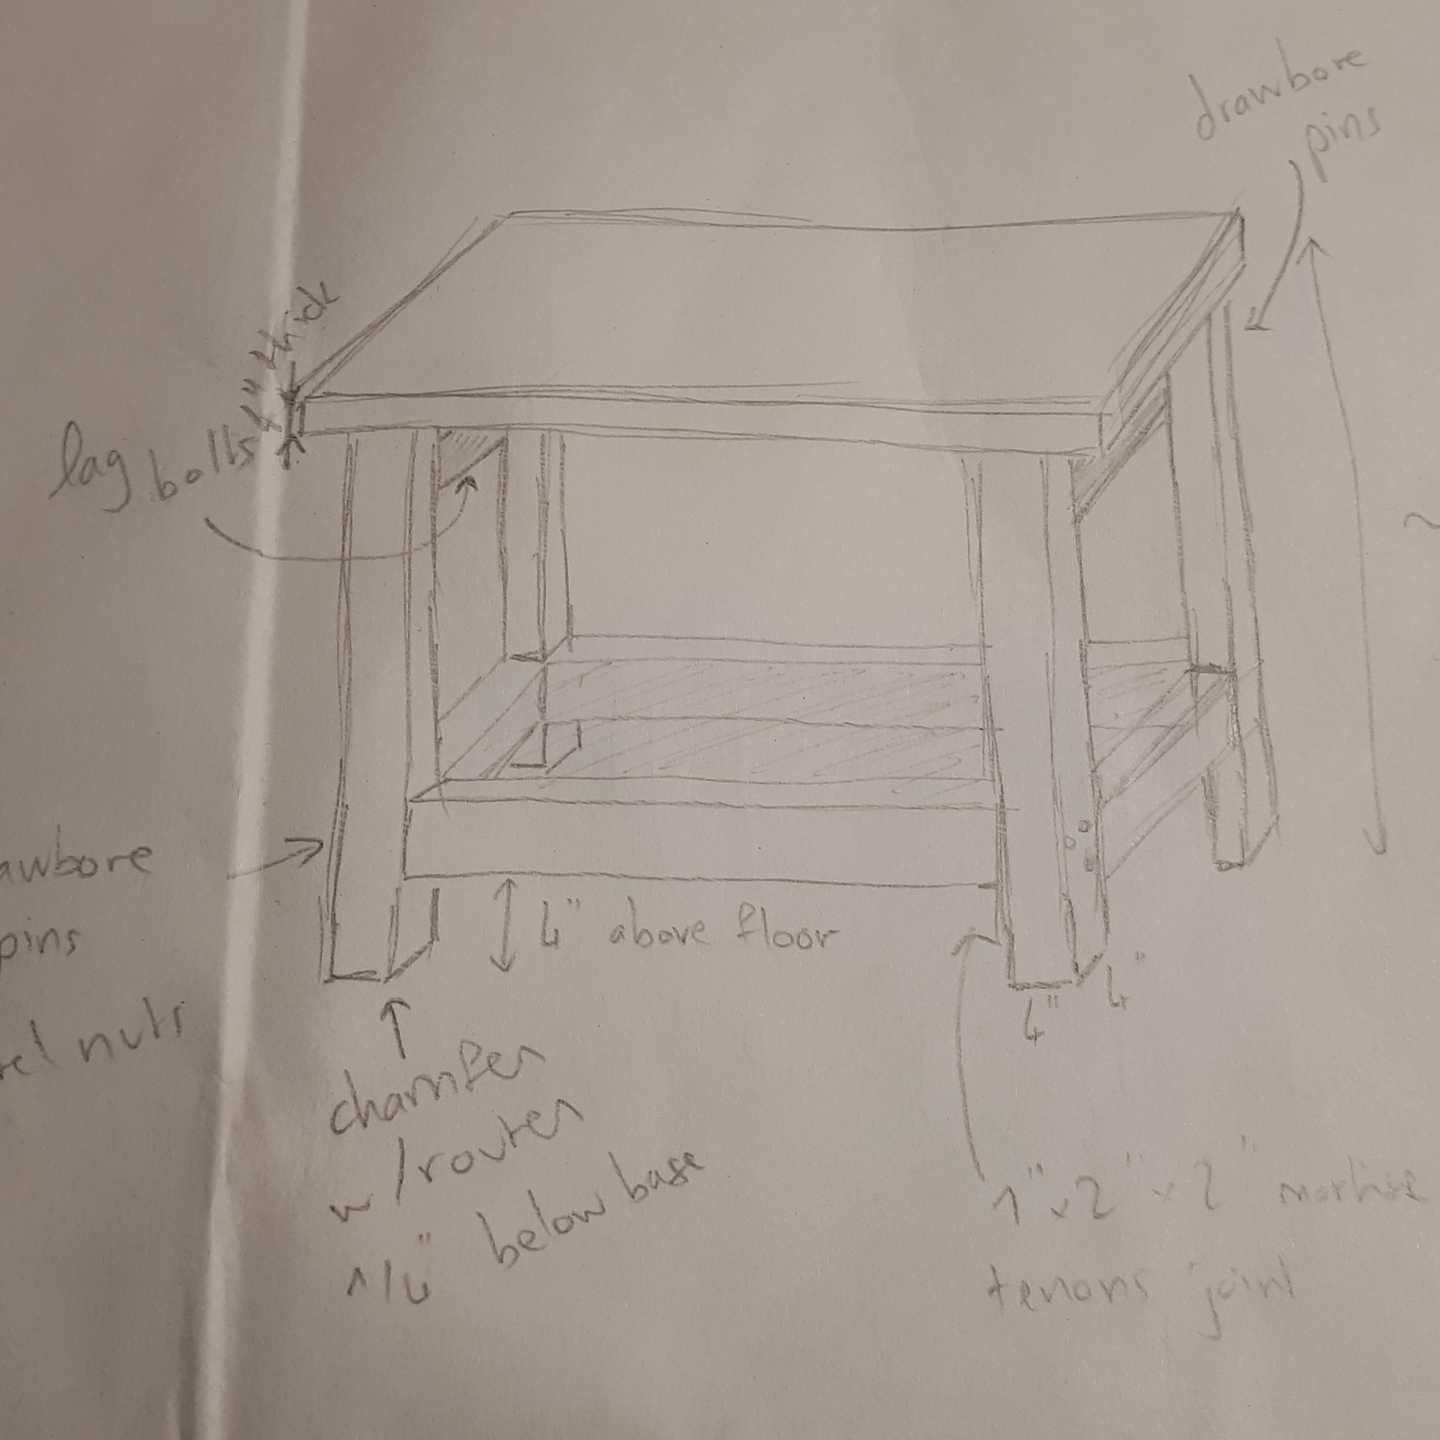 drawbore
pins
4" thick
lag bolts
awbore
pins
rel nuts
4" above floor
4"
4"
chamfer
w/router
1/4" below base
1"x2"x2" mortise
tenons joint